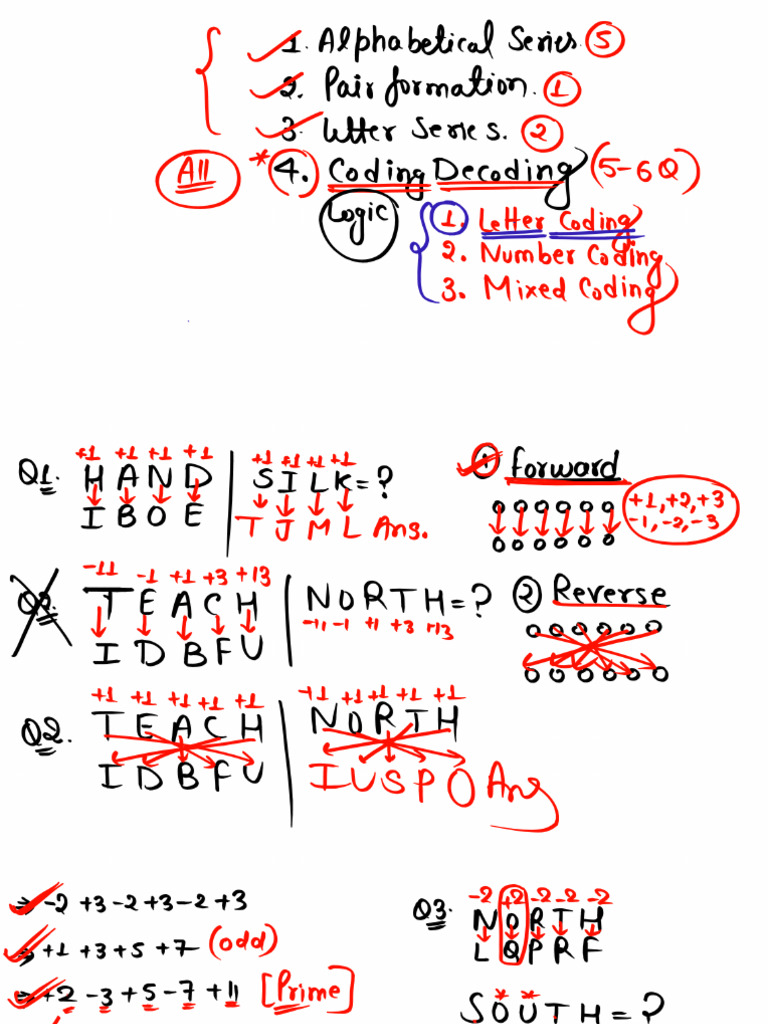 1. Alphabetical Series. 5
2. Pair formation. 1
3. Letter Series. 2
All * 4. Coding Decoding (5-6Q)
Logic
1. Letter Coding
2. Number Coding
3. Mixed Coding
+1 +1 +1 +1
Q1. H A N D
I B O E
+1 +1 +1 +1
S I L K = ?
T J M L Ans.
1 forward
+1, +2, +3
-1, -2, -3
-11 -1 +1 +3 +13
Q2. T E A C H
I D B F U
N O R T H = ?
-11 -1 +1 +3 +13
2 Reverse
+1 +1 +1 +1 +1
Q2. T E A C H
I D B F U
+1 +1 +1 +1 +1
N O R T H
I U S P O Ans
⇒ -2 +3 -2 +3 -2 +3
⇒ +1 +3 +5 +7 (odd)
⇒ +2 -3 +5 -7 +11 [Prime]
-2 +2 -2 -2 -2
Q3. N O R T H
L Q P R F
* *
S O U T H = ?